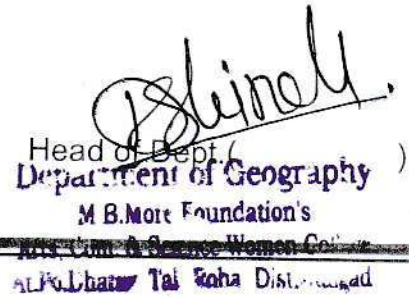 Head of Dept.( )
Department of Geography
M B.More Foundation's
Arts, Com. & Science Women
At.Po.Dhatav Tal Roha Dist.